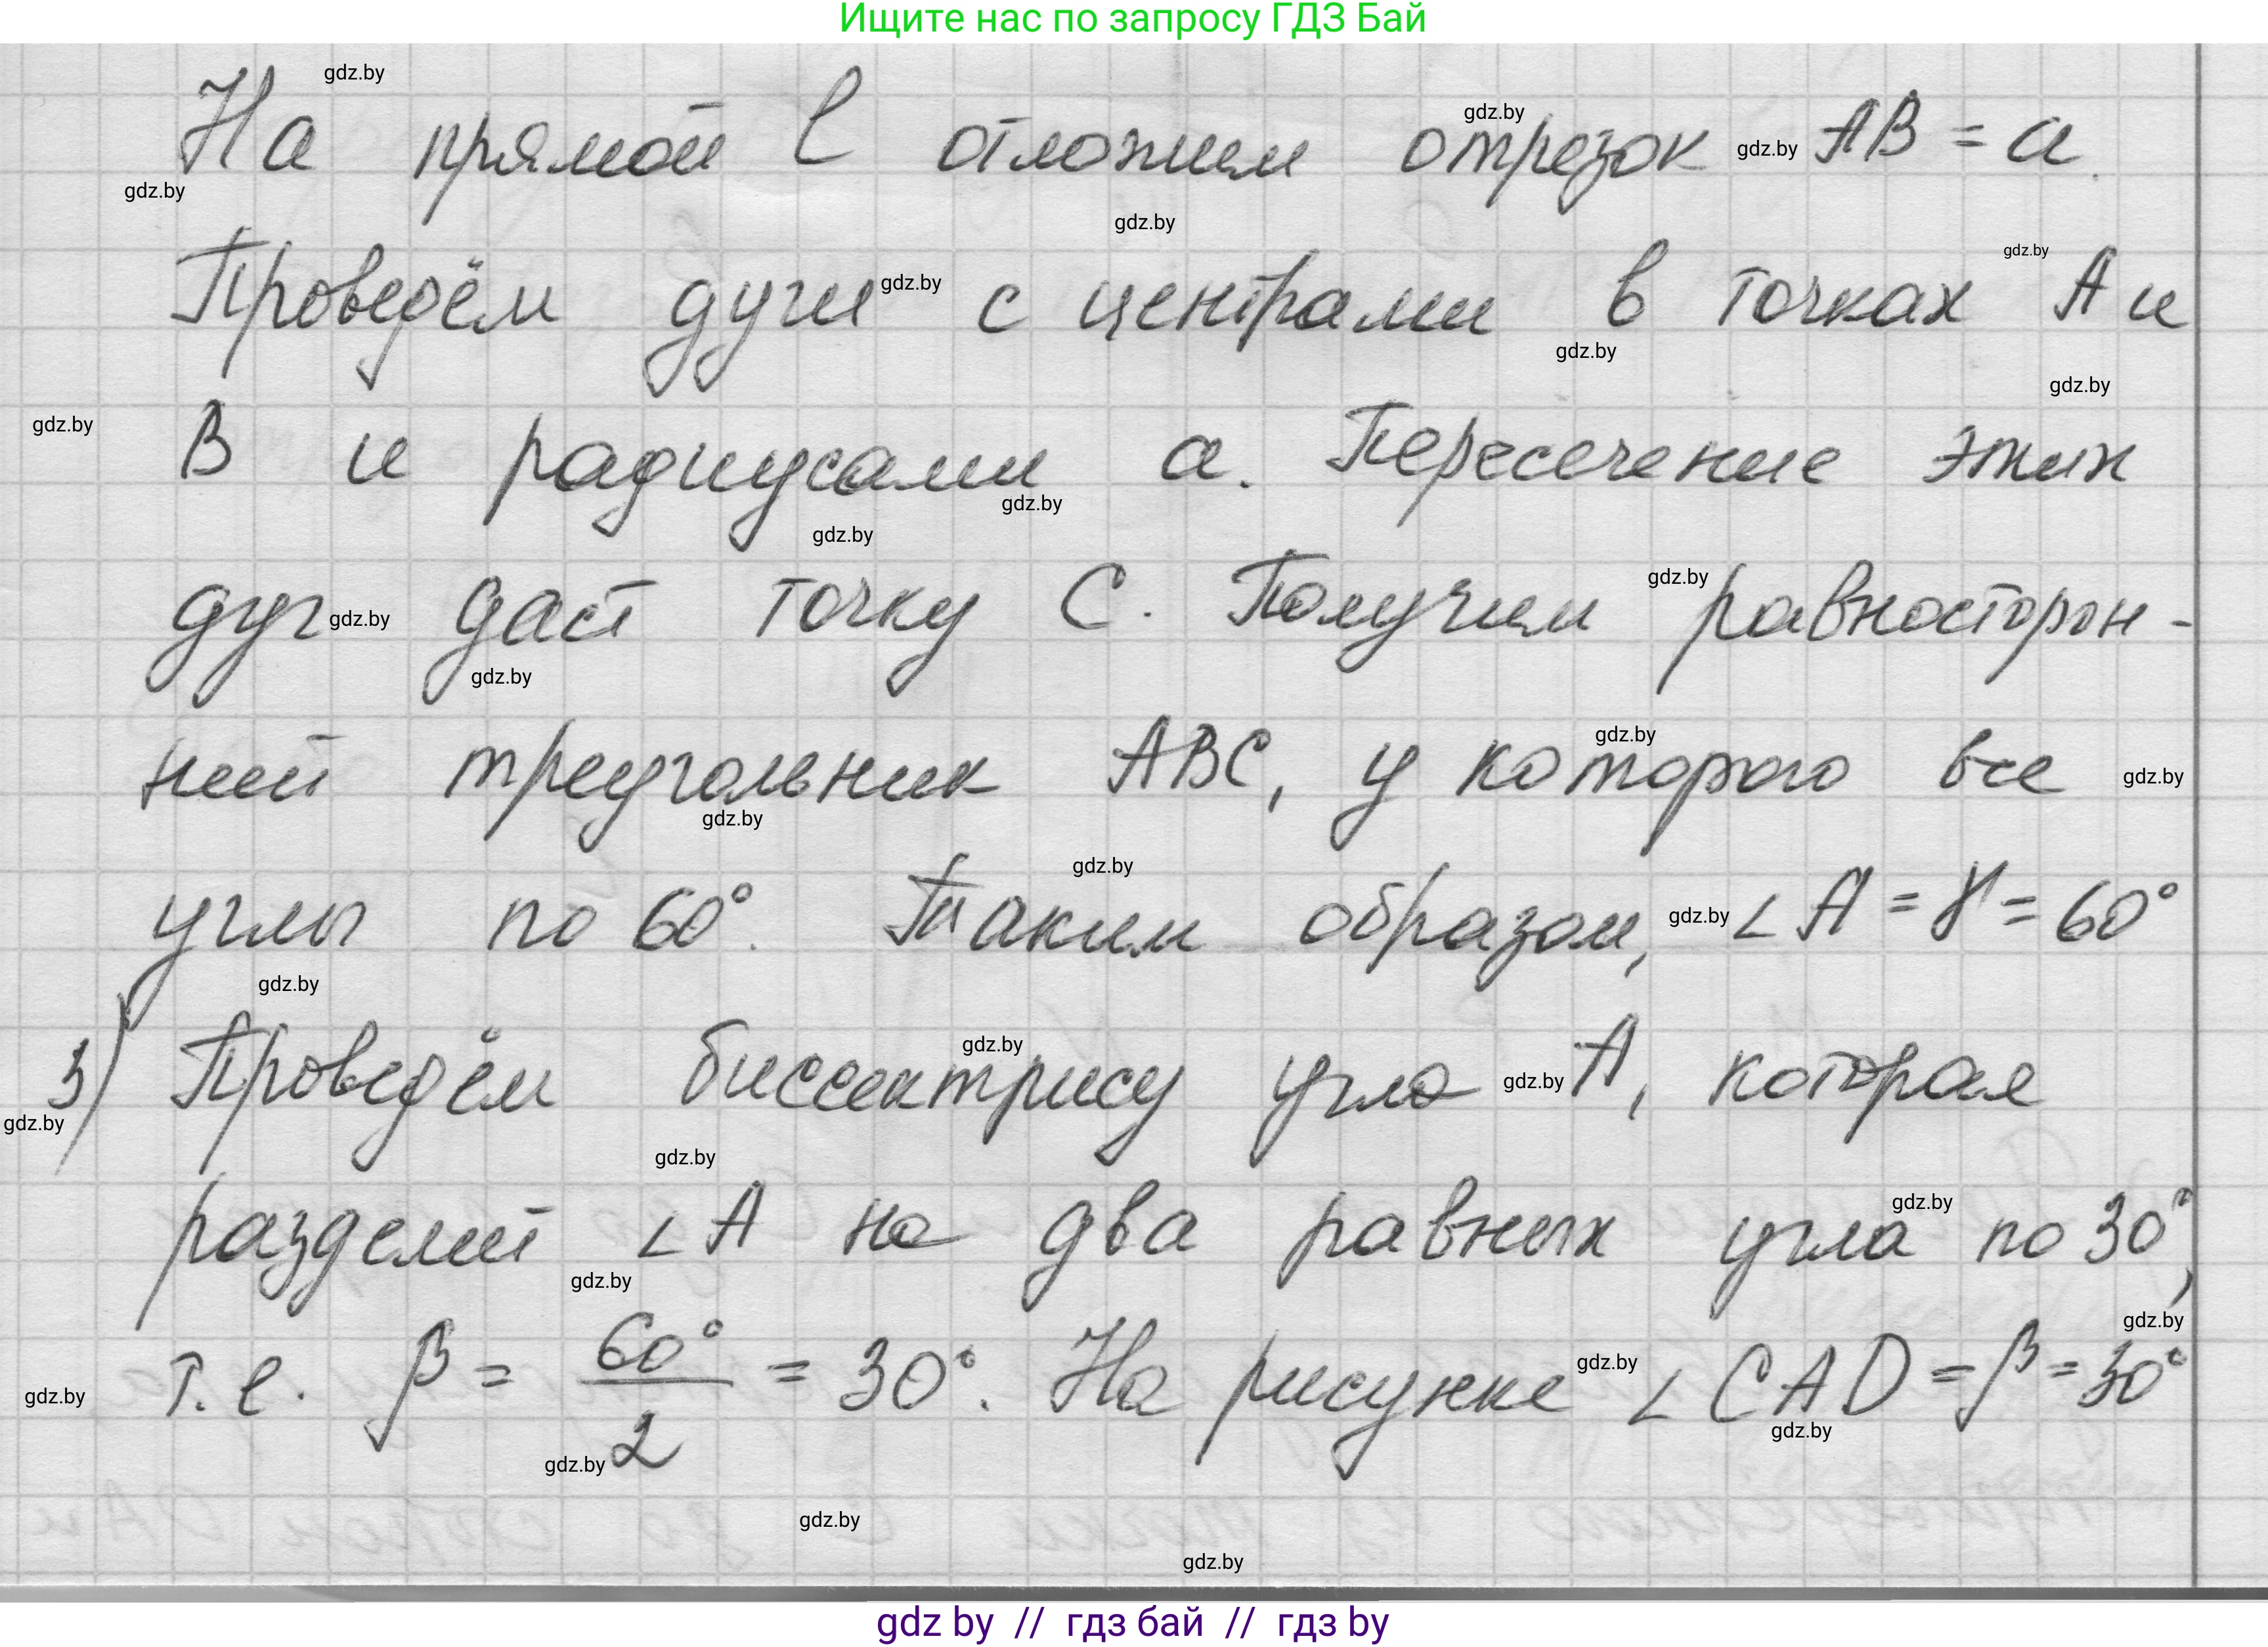 Ищите нас по запросу ГДЗ Бай
gdz.by
На прямой l отложим отрезок AB = a.
gdz.by gdz.by gdz.by
gdz.by
Проведём дуги с центрами в точках A и
gdz.by gdz.by
gdz.by
gdz.by
B и радиусами a. Пересечение этих
gdz.by
gdz.by
gdz.by
дуг даст точку C. Получим равносторон-
gdz.by gdz.by
gdz.by
ний треугольник ABC, у которого все
gdz.by gdz.by
gdz.by
углы по 60°. Таким образом, ∠A = γ = 60°
gdz.by gdz.by
gdz.by
3) Проведём биссектрису угла A, которая
gdz.by gdz.by
gdz.by
gdz.by
разделит ∠A на два равных угла по 30°,
gdz.by
gdz.by
т.е. β = 60°/2 = 30°. На рисунке ∠CAD = β = 30°
gdz.by gdz.by gdz.by
gdz.by
gdz.by
gdz.by
gdz.by
gdz by // гдз бай // гдз by